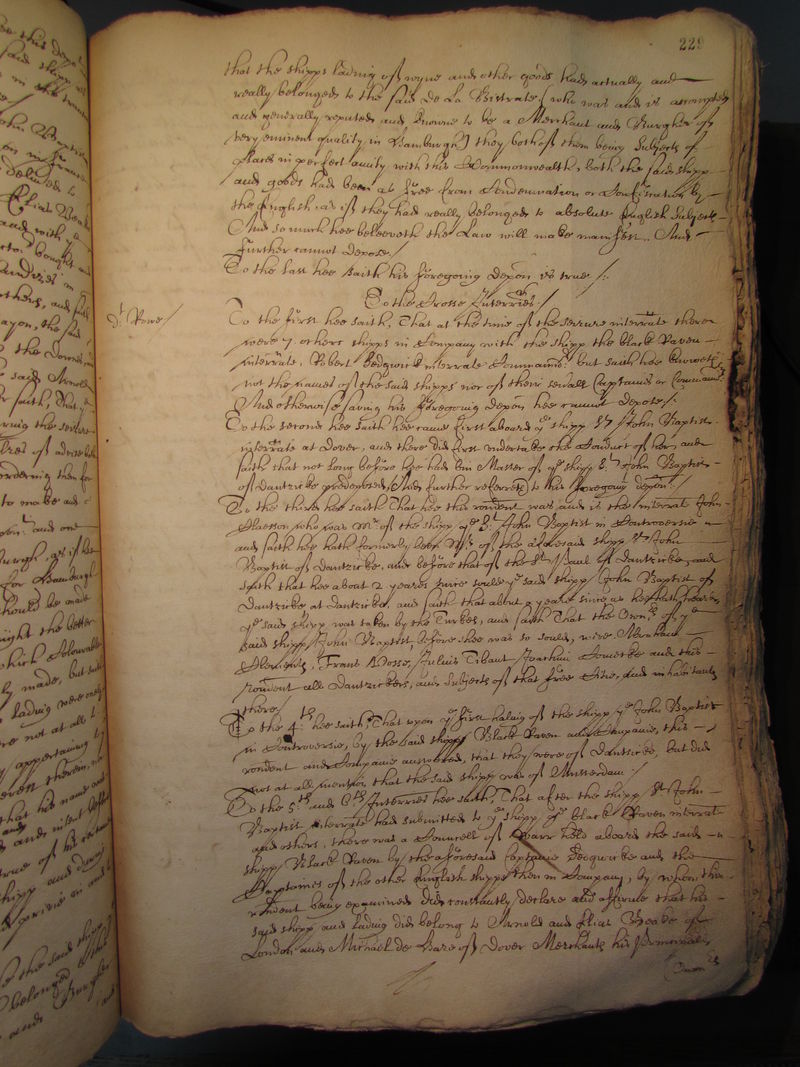 229
that the shipps lading of wyne and other goods had actually and
really belonged to the said De La Bistrate (who was and is accompted
and generally reputed and knowne to be a Merchant and Burgher of
very eminent quality in Hamburgh) they both of them being Subjects of
places in perfect amity with this Commonwealth, both the said shipp
and goods had been as free from Condemnation or Confiscation by
the English as if they had really belonged to absolute English Subjects
And so much hee beleeveth the Law will make manifest. And
further cannot depose./
To the last hee saith his foregoing depon is true /:
To the Crosse Interries /
To the first hee saith, That at the time of the seizure interrate there
were 7 others shipps in Company with the shipp the black Raven
interrate, Robert Sedgwick interrate Commander but saith hee knoweth
not the names of the said shipps nor of their severall Captaines or Command
And otherwise saving his foregoing depon hee cannot depose /:
To the second hee saith hee came first aboard ye shipp St John Baptist
interrate at Dover, and there did first undertake the Conduct of her, and
saith that not long before hee had bin Master of ye shipp St John Baptist
of Dantzicke predeposed, And further referreth to his foregoing depon
To the third hee saith That hee this rondent was and is the interrat John
who was Mr of the shipp ye St John Baptist in Controversie
and saith hee hath formerly been Mr of the aforesaid shipp St John
Baptist of Dantzicke, and before that of the St Paul of Dantzicke, and
saith that hee about 2 yeares since sould ye said shipp John Baptist of
Dantzicke at Dantzicke, and saith that about a yeare since as hee hath heard
ye said shipp was taken by the Turkes, and saith That the Owners of ye
said shipp John Baptist before shee was so sould, were Abraham
Frans Julius Tibaut Joachim and this
rondent all Dantzickers, and Subjects of that free Citie, and inhabitants
there /
To the 4th hee saith, That upon ye first haling of the shipp ye John Baptist
in Controversie, by the said shipp Black Raven and Companie, this
rondent and Companie answered, that they were of Dantzicke, but did
not at all mention that the said shipp was of Amsterdam /
To the 5th and 6th Interries hee saith, That after the shipp St John
Baptist interrate had submitted to ye shipp ye black Raven interrat
and others, there was a Councell of Warr held aboard the said
shipp Black Raven by the aforesaid Captaine Sedgwicke and the
Captaines of the other English shipps then in Company, by whom this
rondent being examined did constantly declare and affirme that his
said shipp and lading did belong to Arnold and Elias Beake of
London and Michael de Haze of Dover Merchants his Principalls